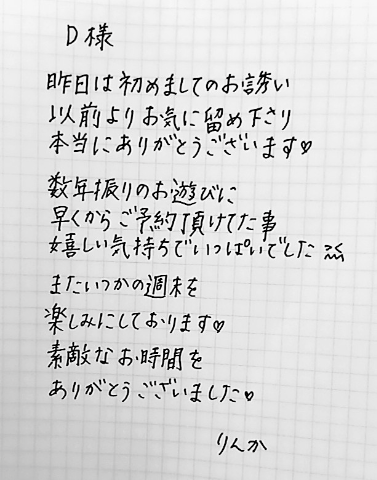 D様
昨日は初めましてのお誘い
以前よりお気に留め下さり
本当にありがとうございます♡
数年振りのお遊びに
早くからご予約頂けてた事
嬉しい気持ちでいっぱいでした
またいつかの週末を
楽しみにしております♡
素敵なお時間を
ありがとうございました♡
りんか